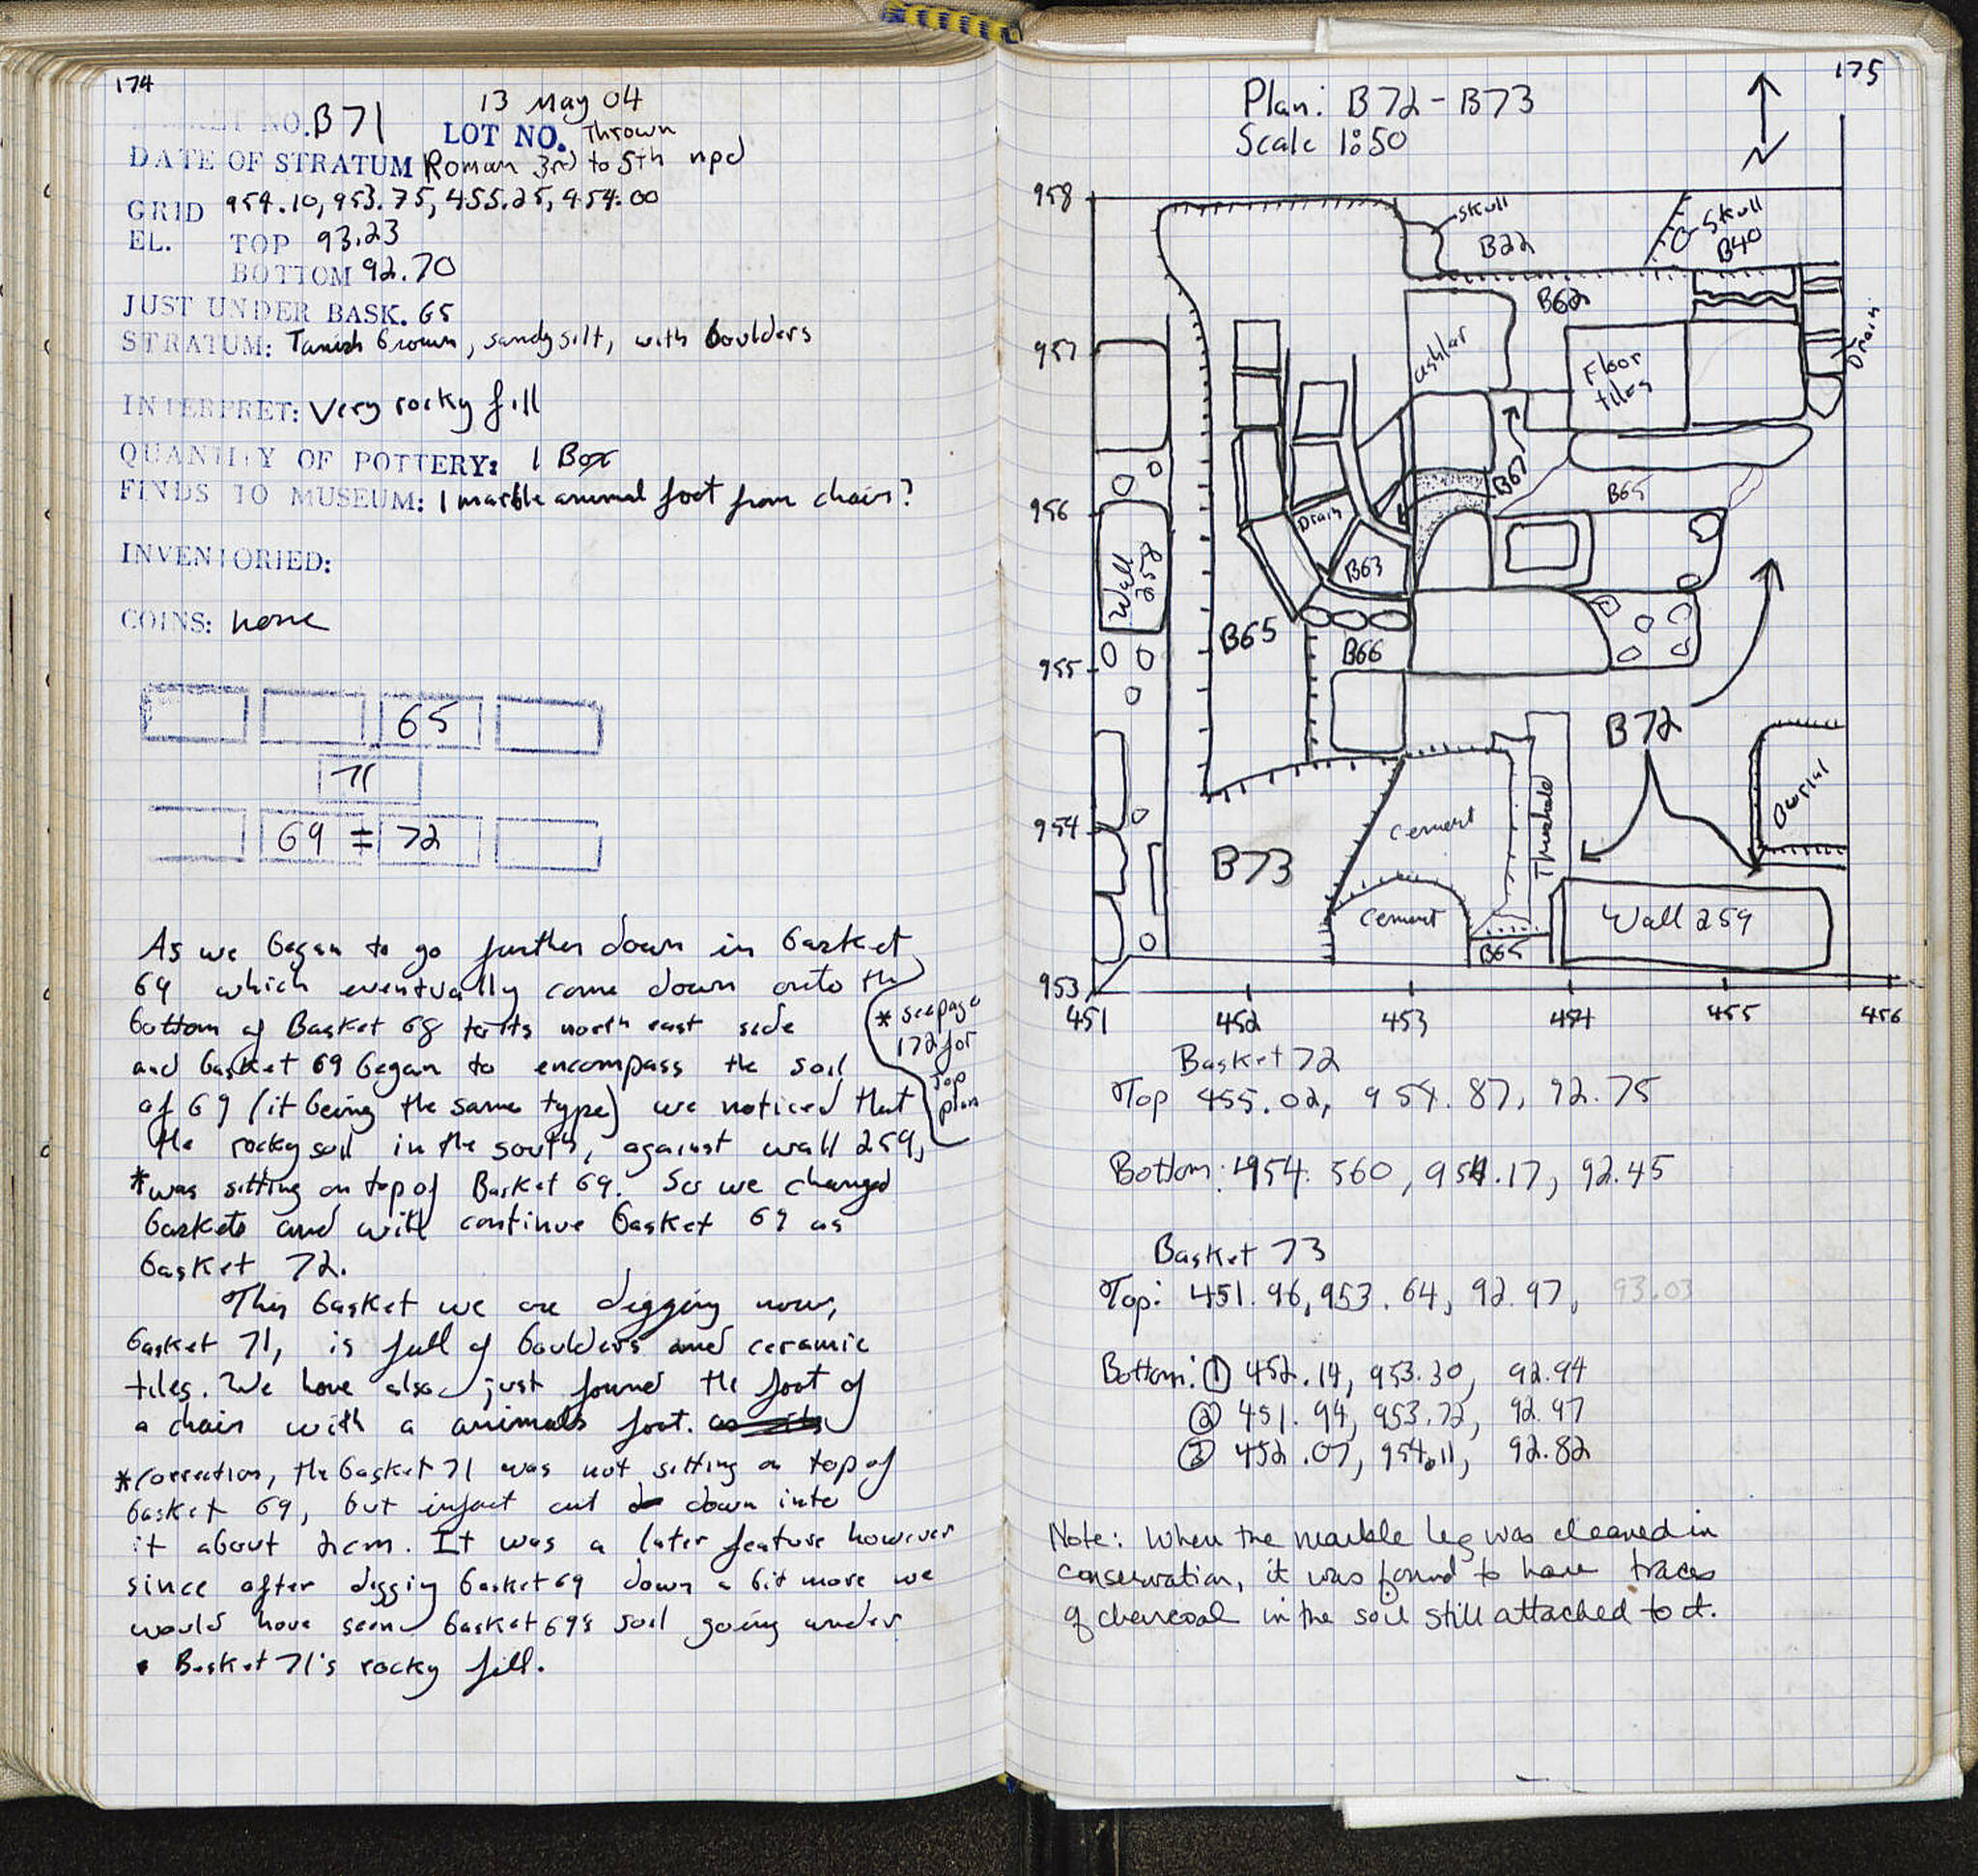 174
13 May 04
NO. B71 LOT NO. Thrown
DATE OF STRATUM Roman 3rd to 5th npd
GRID 954.10, 953.75, 455.25, 454.00
EL. TOP 93.23
BOTTOM 92.70
JUST UNDER BASK. 65
STRATUM: Tanish brown, sandy silt, with boulders
INTERPRET: Very rocky fill
QUANTITY OF POTTERY: 1 Box
FINDS TO MUSEUM: 1 marble animal foot from chair?
INVENTORIED:
COINS: none
65
71
69 = 72
As we began to go further down in basket
69 which eventually came down onto the
bottom of Basket 68 to its north east side
and basket 69 began to encompass the soil
of 69 (it being the same type) we noticed that
the rocky soil in the south, against wall 259,
*was sitting on top of Basket 69. So we changed
baskets and will continue basket 69 as
basket 72.
* see page
172 for
top
plan
This basket we are digging now,
basket 71, is full of boulders and ceramic
tiles. We have also just found the foot of
a chair with a animals foot.
*correction, the basket 71 was not sitting on top of
basket 69, but infact cut down into
it about 2cm. It was a later feature however
since after digging basket 69 down a bit more we
would have seen basket 69's soil going under
Basket 71's rocky fill.
175
Plan: B72-B73
Scale 1:50
N
958
957
956
955
954
953
451
452
453
454
455
456
skull
B22
skull
B40
B62
ashlar
Floor
tiles
Drain
B67
B65
Drain
B63
Wall
258
B65
B66
B72
Burial
cement
Threshold
B73
cement
B65
Wall 259
Basket 72
Top 455.02, 954.87, 92.75
Bottom: 454.560, 954.17, 92.45
Basket 73
Top: 451.96, 953.64, 92.97, 93.03
Bottom: ① 452.14, 953.30, 92.94
② 451.94, 953.72, 92.97
③ 452.07, 954.11, 92.82
Note: When the marble leg was cleaned in
conservation, it was found to have traces
of charcoal in the soil still attached to it.